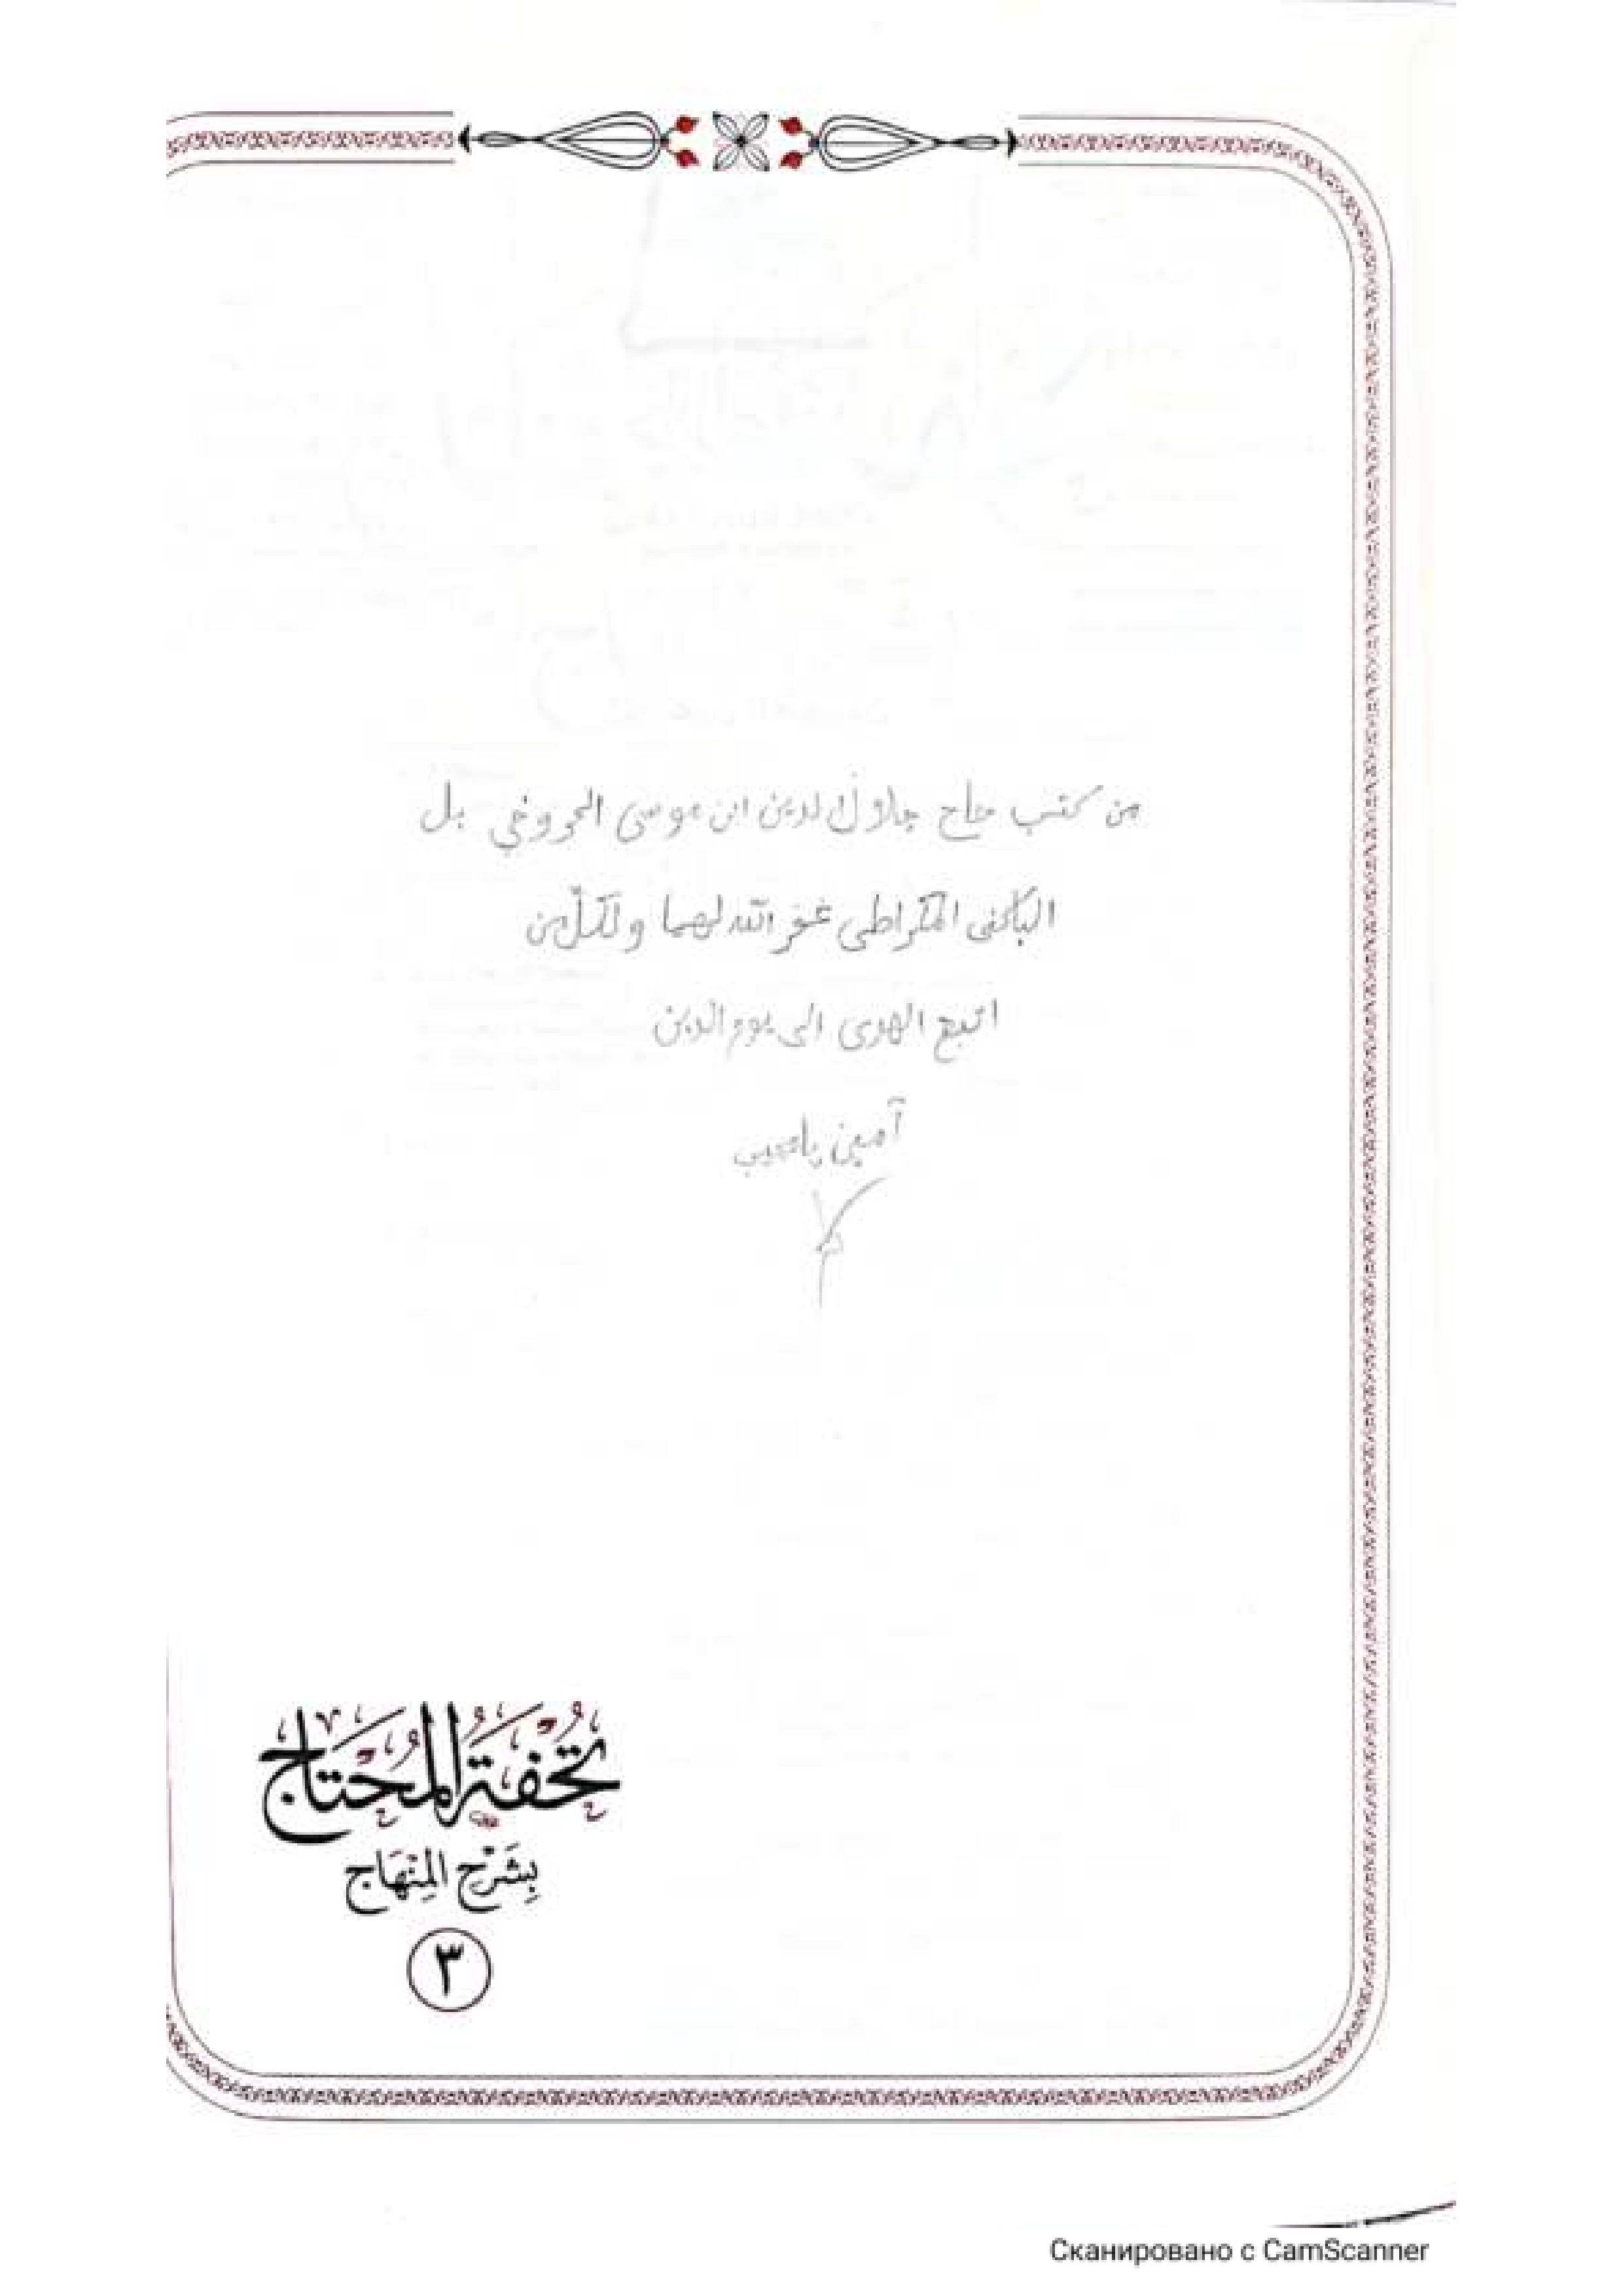 من كتب حاج جلال الدين ابن موسى بل
غفر الله لهما ولكلّ من
اتبع الهدى الى يوم الدين
آمين يا مجيب
تُحْفَةُ المُحْتَاج
بِشَرْحِ المِنْهَاج
٣
Сканировано с CamScanner